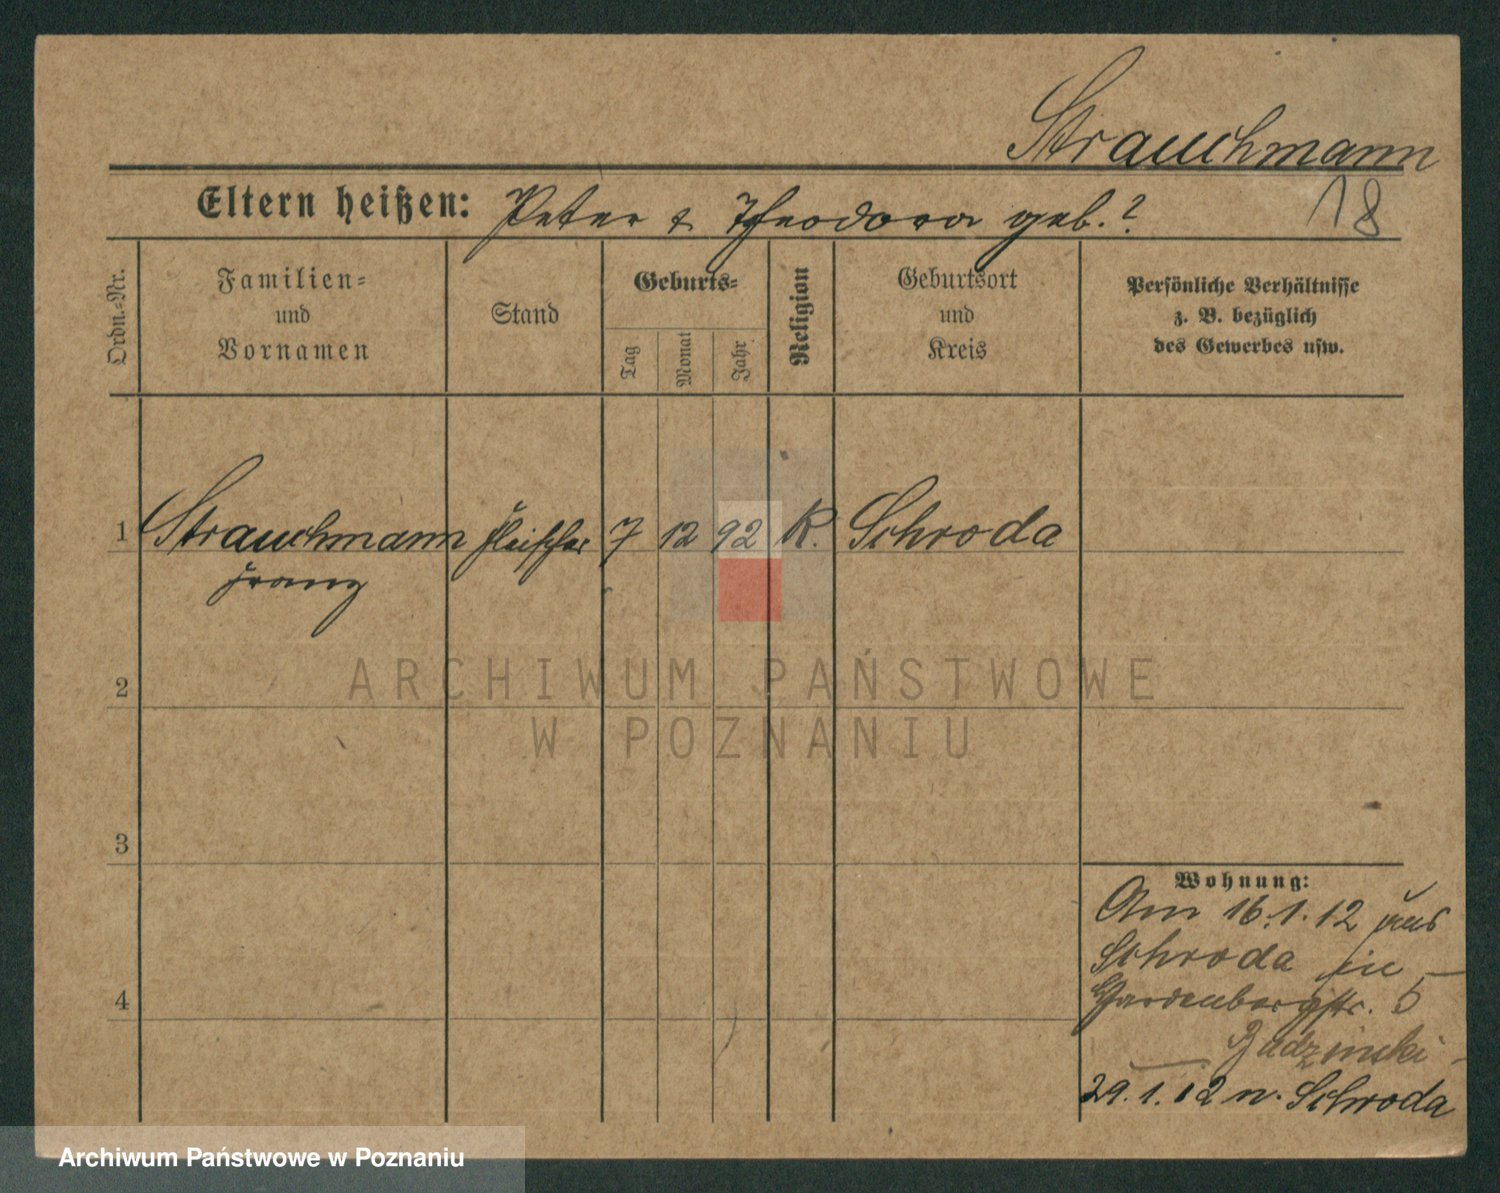 Strauchmann
18
Eltern heißen: Peter & Theodora geb. ?
Ordn.-Nr.
Familien-
und
Vornamen
Stand
Geburts-
Tag
Monat
Jahr
Religion
Geburtsort
und
Kreis
Persönliche Verhältnisse
z. B. bezüglich
des Gewerbes usw.
1 Strauchmann Fleischer 7 12 92 K. Schroda
Franz
2
ARCHIWUM PAŃSTWOWE
W POZNANIU
3
Wohnung:
Am 16.1.12 aus
Schroda in
Hardenbergstr. 5
4
Budzinski
29.1.12 n. Schroda
Archiwum Państwowe w Poznaniu